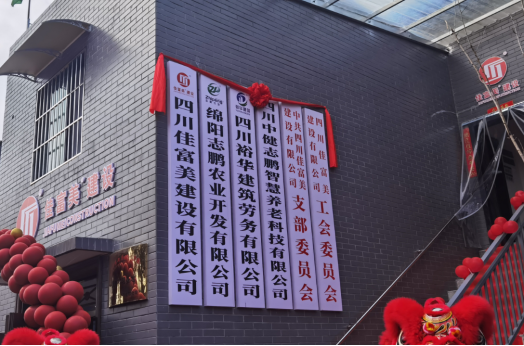 佳富美建设
四川佳富美建设有限公司
绵阳志鹏农业开发有限公司
四川裕华建筑劳务有限公司
四川中健志鹏智慧养老科技有限公司
中共四川佳富美
建设有限公司
支部委员会
四川佳富美
建设有限公司
工会委员会
佳富美建设
CONSTRUCTION
佳富美建设